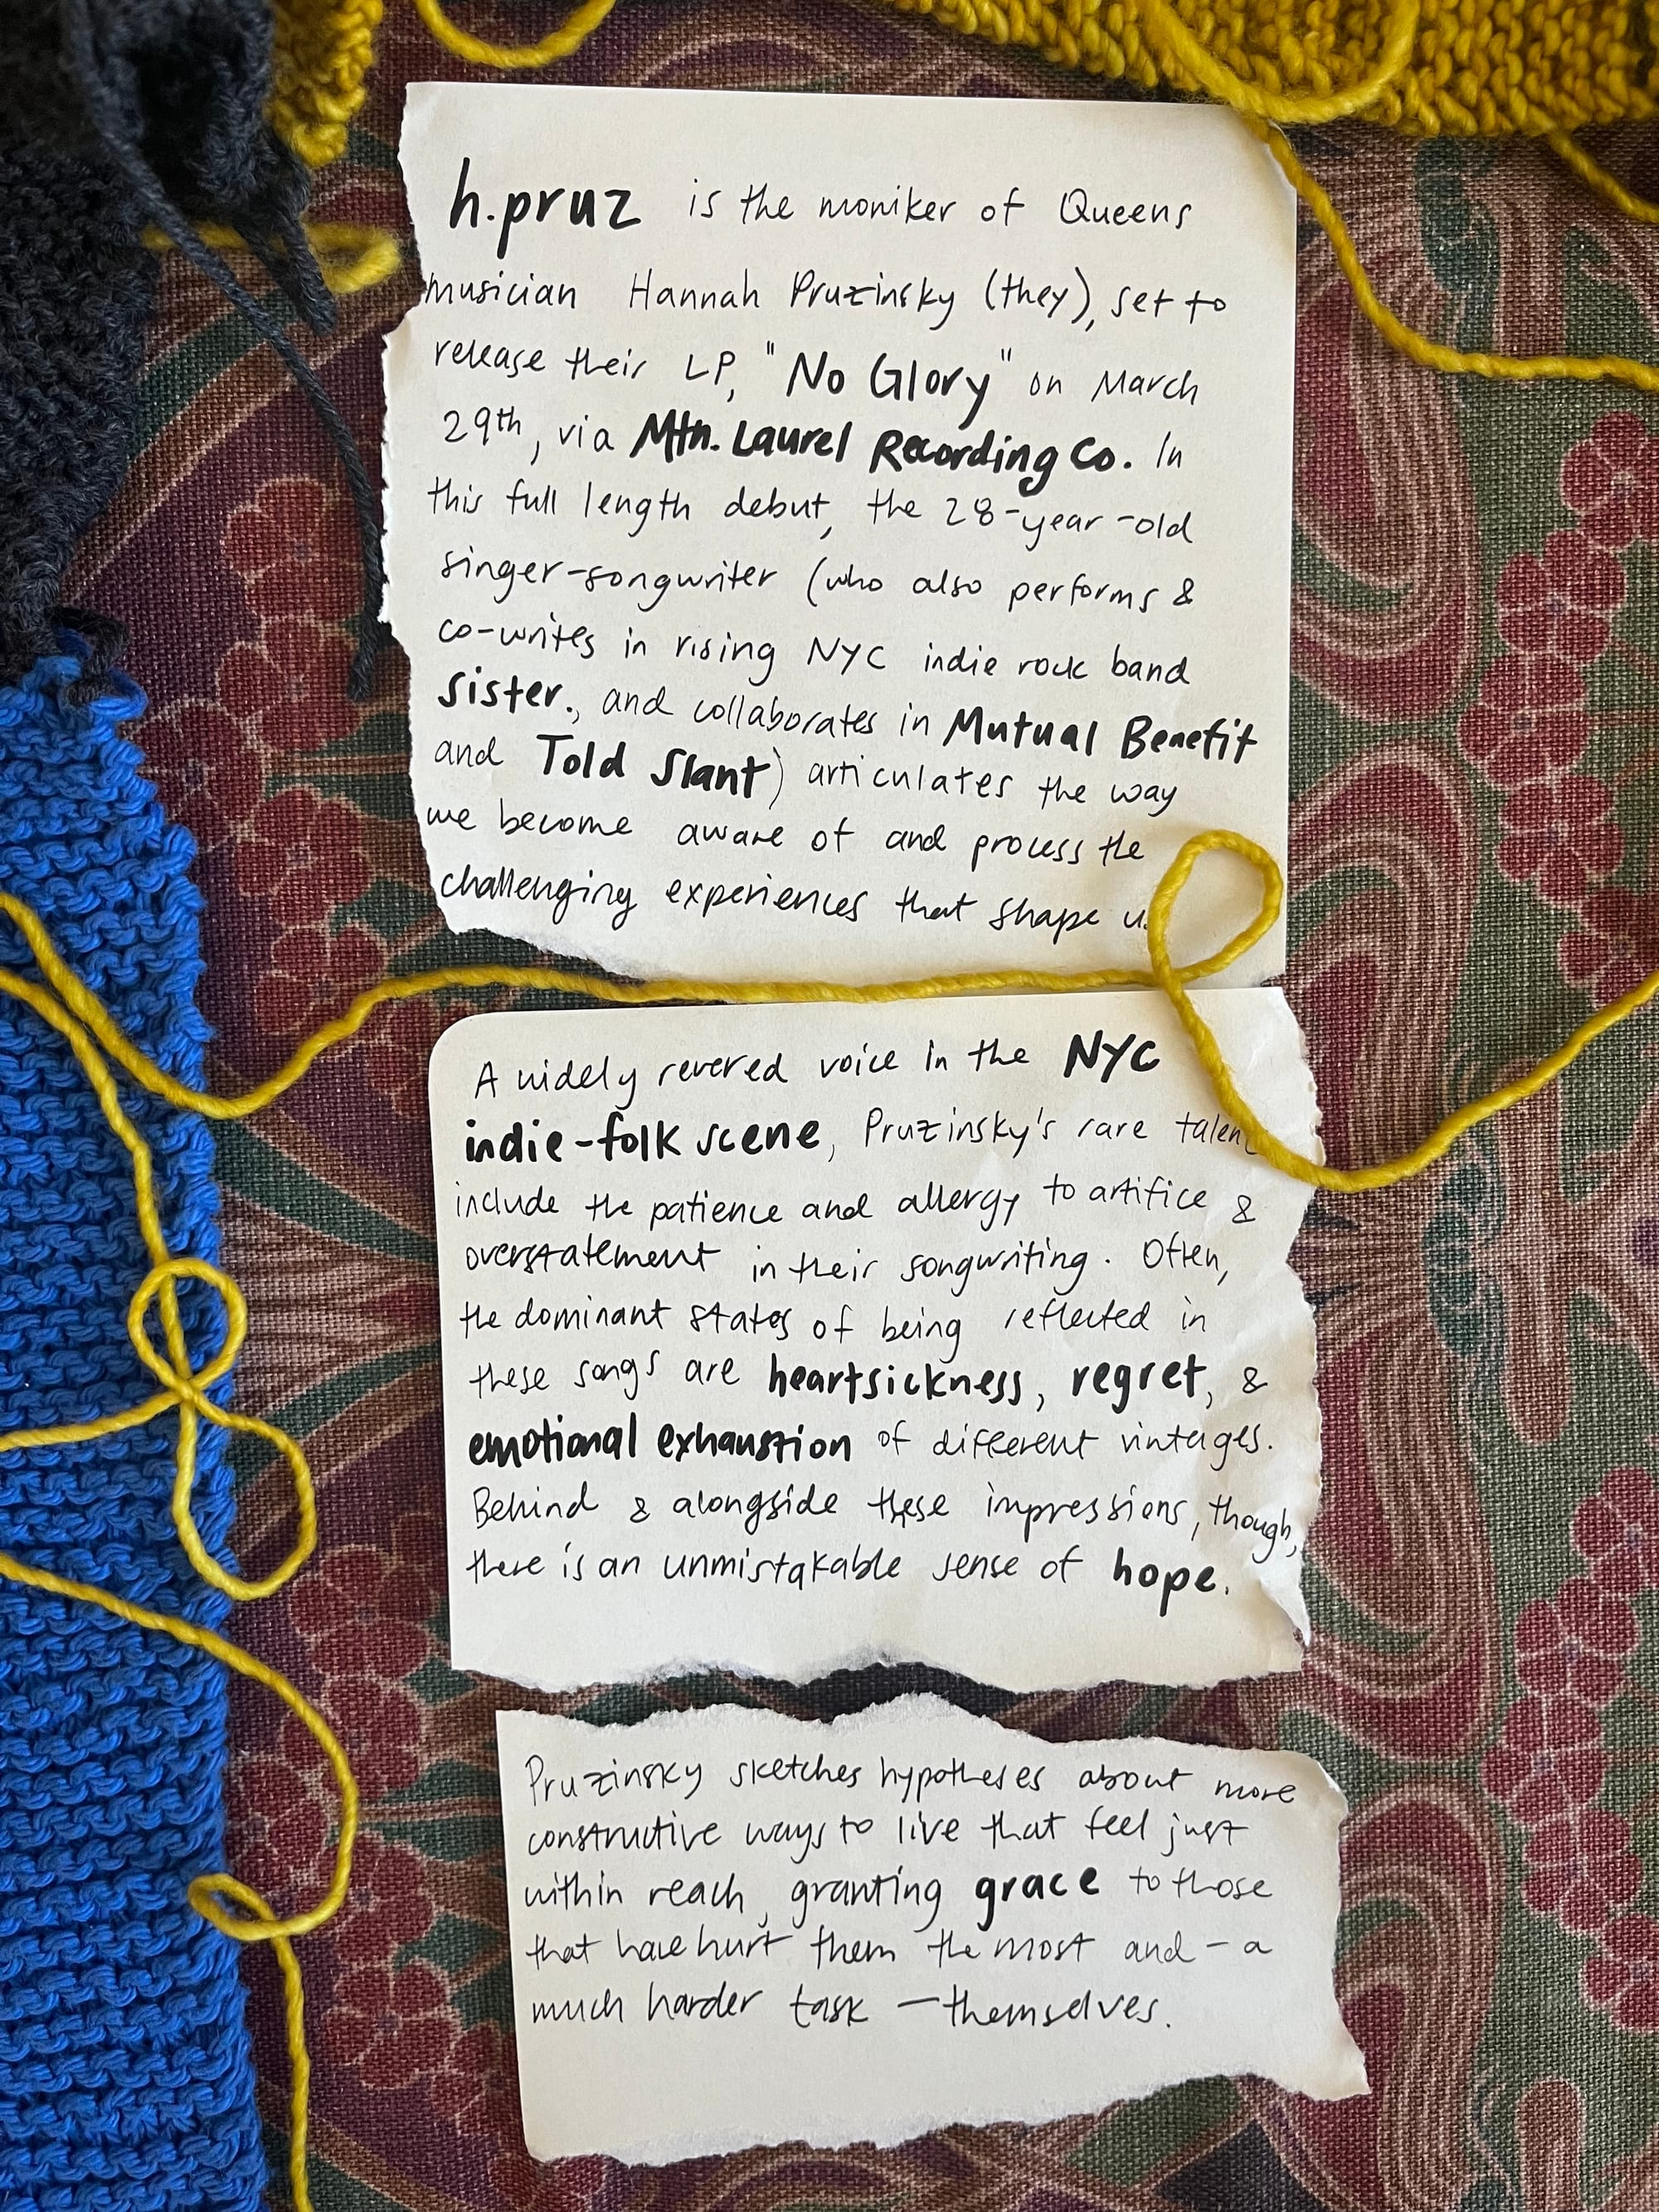 h.pruz is the moniker of Queens
musician Hannah Pruzinsky (they), set to
release their LP, "No Glory" on March
29th, via Mtn. Laurel Recording Co. In
this full length debut, the 28-year-old
singer-songwriter (who also performs &
co-writes in rising NYC indie rock band
sister., and collaborates in Mutual Benefit
and Told Slant) articulates the way
we become aware of and process the
challenging experiences that shape
A widely revered voice in the NYC
indie-folk scene, Pruzinsky's rare
include the patience and allergy to artifice &
overstatement in their songwriting. Often,
the dominant states of being reflected in
these songs are heartsickness, regret, &
emotional exhaustion of different vintages.
Behind & alongside these impressions, though,
there is an unmistakable sense of hope.
Pruzinsky sketches hypotheses about more
constructive ways to live that feel just
within reach, granting grace to those
that have hurt them the most and - a
much harder task - themselves.